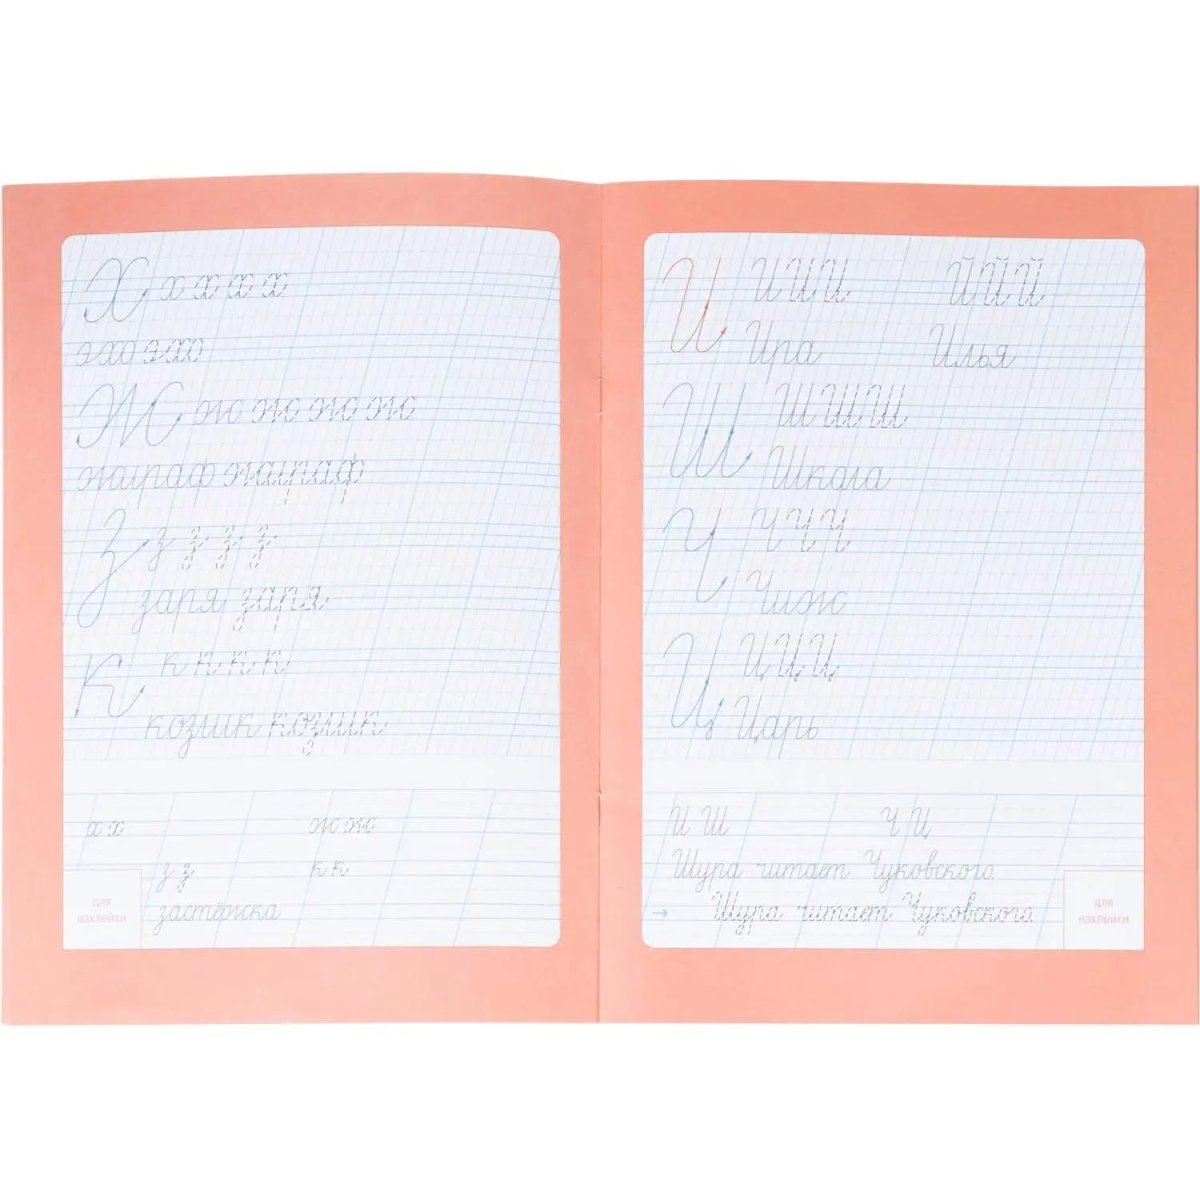 Х х х х х
эхо эхо
Ж ж ж ж ж
жираф жираф
З з з з з
заря заря
К к к к к
козлик козлик
х х ж ж
з з к к
застёжка
для
наклейки
И И И И Й Й Й
Ира Илья
Ш Ш Ш Ш
Школа
Ч Ч Ч Ч
Чиж
Ц Ц Ц Ц
Царь
И Ш Ч Ц
Шура читает Чуковского.
→ Шура читает Чуковского.
для
наклейки